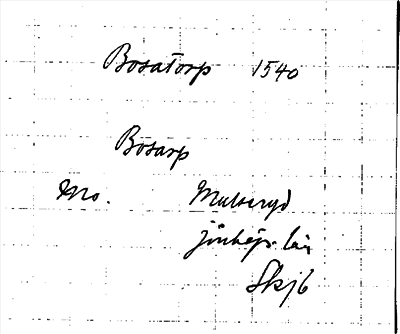 Bosatorp 1540
Bosarp
Mo. Mulseryd
Jönköp. län
Skjb